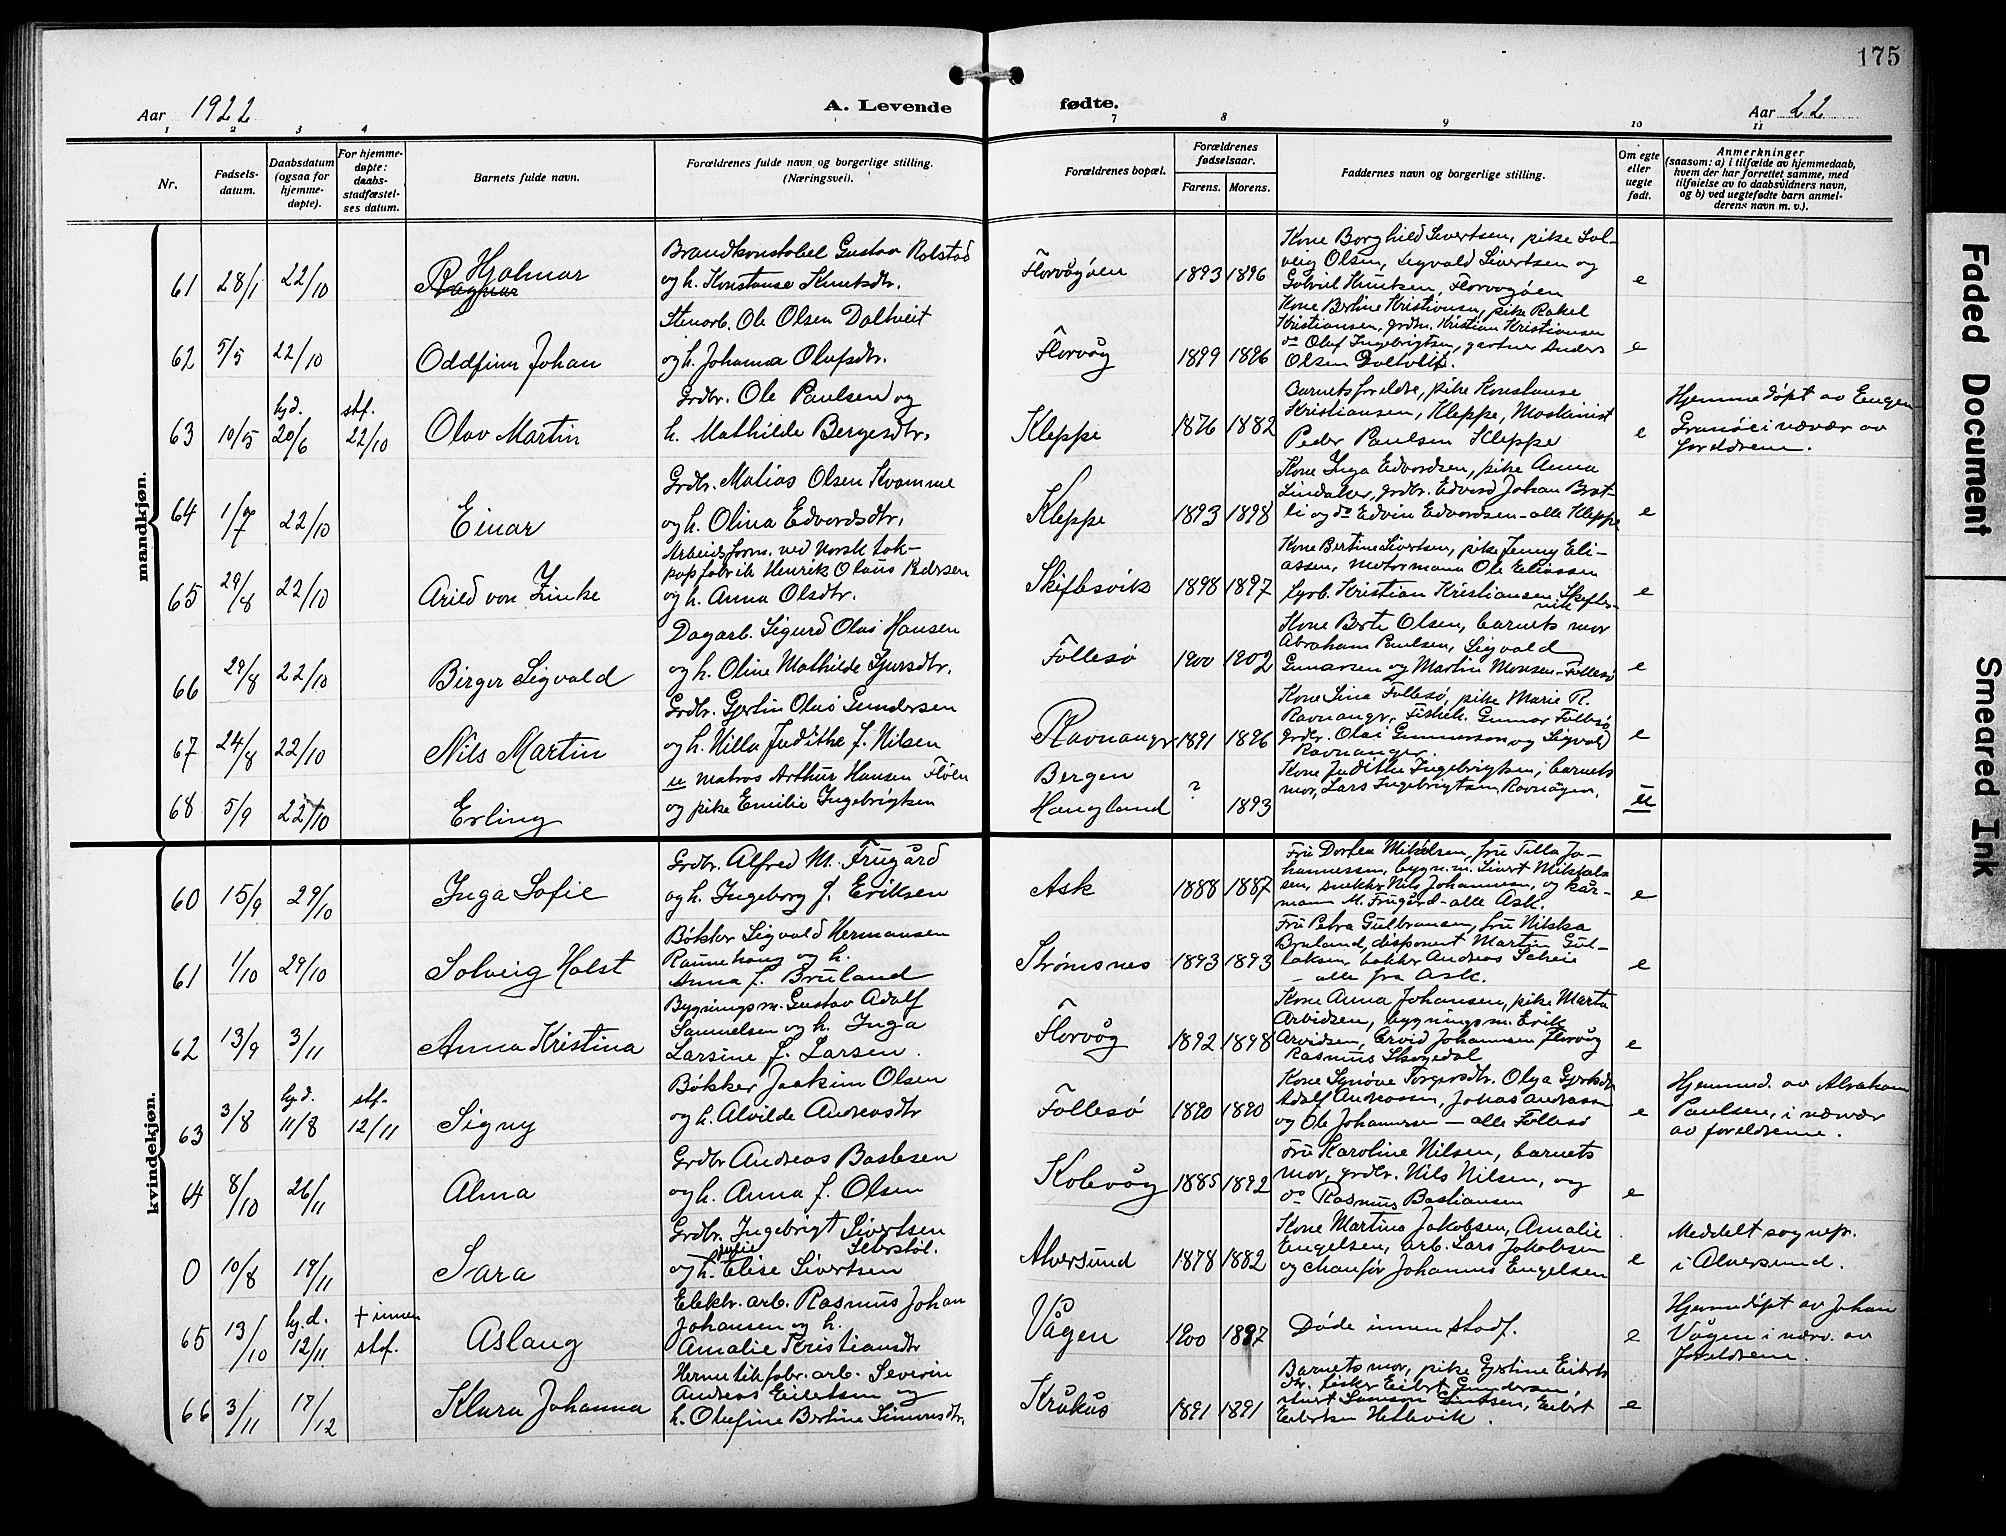 175
Aar 1922
A. Levende
fødte.
Aar 22
1 2 3 4
7 8 9 10 11
Nr.
Fødsels-
datum.
Daabsdatum
(ogsaa for
hjemme-
døpte).
For hjemme-
døpte:
daabs-
stadfæstel-
ses datum.
Barnets fulde navn.
Forældrenes fulde navn og borgerlige stilling.
(Næringsvei).
Forældrenes bopæl.
Forældrenes
fødselsaar.
Farens. Morens.
Faddernes navn og borgerlige stilling.
Om egte
eller
uegte
født.
Anmerkninger
(saasom: a) i tilfælde av hjemmedaab,
hvem der har forrettet samme, med
tilføielse av to daabsvidners navn,
og b) ved uegtefødte barn anmel-
derens navn m. v.).
mandkjøn.
61 28/1 22/10
Hjalmar
Ragnar
Brandkonstabel Gustav Rolstad
og h. Konstanse Knutsdtr.
Florvågøen 1893 1896
Kone Borghild Sivertsen, pike Sol-
veig Olsen, Sigvald Sivertsen og
Gabriel Knutsen, Florvagøen
e
62 5/5 22/10
Oddfinn Johan
Stenarb. Ole Olsen Daltveit
og h. Johanna Olufsdtr.
Florvåg 1899 1896
Kone Bertine Kristiansen, pike Rakel
Kristiansen, grdbr. Kristian Kristiansen
do Oluf Ingebrigtsen, gartner Anders
Olsen Daltveit.
e
63 10/5 hj.d. 20/6 stf. 22/10
Olav Martin
Grdbr. Ole Paulsen og
h. Mathilde Bergesdtr.
Kleppe 1876 1882
Barnets foreldre, pike Konstanse
Kristiansen, Kleppe, Maskinist
Peder Paulsen Kleppe
e
Hjemmedøpt av Eugen
Granøe i nævær av
foreldrene.
64 1/7 22/10
Einar
Grdbr. Matias Olsen Kvamme
og h. Olina Edvardsdtr.
Kleppe 1893 1898
Kone Inga Edvardsen, pike Anna
Lindaker, grdbr. Edvard Johan Brat-
li og do Edvin Edvardsen - alle Kleppe
e
65 29/8 22/10
Arild von Zinke
Arbeidsform. ved Norsk tak-
papfabrik Henrik Olaus Pedersen
og h. Anna Olsdtr.
Skiftesvik 1898 1897
Kone Bertine Sivertsen, pike Jenny Eli-
assen, motormann Ole Eliassen
fyrb. Kristian Kristiansen Skiftes-
vik
e
66 29/8 22/10
Birger Sigvald
Dagarb. Sigurd Olai Hansen
og h. Oline Mathilde Sjursdtr.
Follesø 1900 1902
Kone Berte Olsen, barnets mor
Abraham Paulsen, Sigvald
Gunnarsen og Martin Monsen - Follesø
e
67 24/8 22/10
Nils Martin
Grdbr. Gjertin Olai Gundersen
og h. Nilla Judithe f. Nilsen
Ravnanger 1891 1896
Kone Sina Follesø, pike Marie R.
Ravnangr, Fiskeh. Gunnar Follesø
grdbr. Olai Gunnarson og Sigvald
Ravnanger.
e
68 5/9 22/10
Erling
u matros Arthur Hansen Fløen
og pike Emilie Ingebrigtsen
Bergen ?
Haugland 1893
Kone Judithe Ingebrigtsen, barnets
mor, Lars Ingebrigtsen Ravnågen.
u
kvindekjøn.
60 15/9 29/10
Inga Sofie
Grdbr. Alfred M. Frugård
og h. Ingeborg J. Eriksen
Ask 1888 1887
Fru Dortea Mikkelsen, fru Tilla Jo-
hannessen, bygn.m. Sivert Mikkel-
sen, snekker Nils Johannesen, og kår-
mann M. Frugård - alle Ask.
e
61 1/10 29/10
Solveig Holst
Bøkker Sigvald Hermansen
Raunehaug og h.
Anna f. Bruland
Strømsnes 1893 1893
Fru Petra Gulbransen, fru Nikka
Bruland, disponent Martin Gul-
laksen, bøkker Andreas Scheie
- alle fra Ask.
e
62 13/9 3/11
Anna Kristina
Bygningsm. Gustav Adolf
Samuelsen og h. Inga
Larsine f. Larsen.
Florvåg 1892 1898
Kone Anna Johansen, pike Marta
Arvidsen, bygningsm. Erik
Arvidsen, Arvid Johannsen Florvåg
Rasmus Skogedal
e
63 3/8 hj.d. 11/8 stf. 12/11
Signy
Bøkker Joakim Olsen
og h. Alvilde Andreasdtr
Follesø 1890 1890
Kone Synøve Torgersdtr. Olga Gjertsdtr
Adolf Andreassen, Johas Andrassen
og Ole Johannesen - alle Follesø
e
Hjemmed. av Abraham
Paulsen, i nævær
av foreldrene.
64 8/10 26/11
Alma
Grdbr Andreas Bastesen
og h. Anna f. Olsen
Kolevåg 1885 1892
Fru Karoline Nilsen, barnets
mor, grdbr. Nils Nilsen, og
do Rasmus Bastiansen
e
0 10/8 19/11
Sara
Grdbr. Ingebrigt Sivertsen
Sebøstøl.
og h. Sofie Elise Sivertsen
Alversund 1878 1882
Kone Martina Jakobsen, Amalie
Engelsen, arb. Lars Jakobsen
og chaufør Johannes Engelsen
e
Meddelt sognepr.
i Alversund.
65 13/10 hj.d. 12/11 + innen stf.
Aslaug
Elektr. arb. Rasmus Johan
Johansen og h.
Amalie Kristiansdtr
Vågen 1900 1897
Døde innen stadf.
e
Hjemmedøpt av Johan
Vågen i nærv. av
foreldrene.
66 3/11 17/12
Klara Johanna
Hermetikfabr. arb. Severin
Andreas Eilertsen og
h. Olufine Bertine Simonsdtr.
Kråkås 1891 1891
Barnets mor, pike Gjertine Eilerts
dtr. fisker Eilert Gundersen,
Eilert
Eilertsen Hetlevik.
e
Faded Document
Smeared Ink